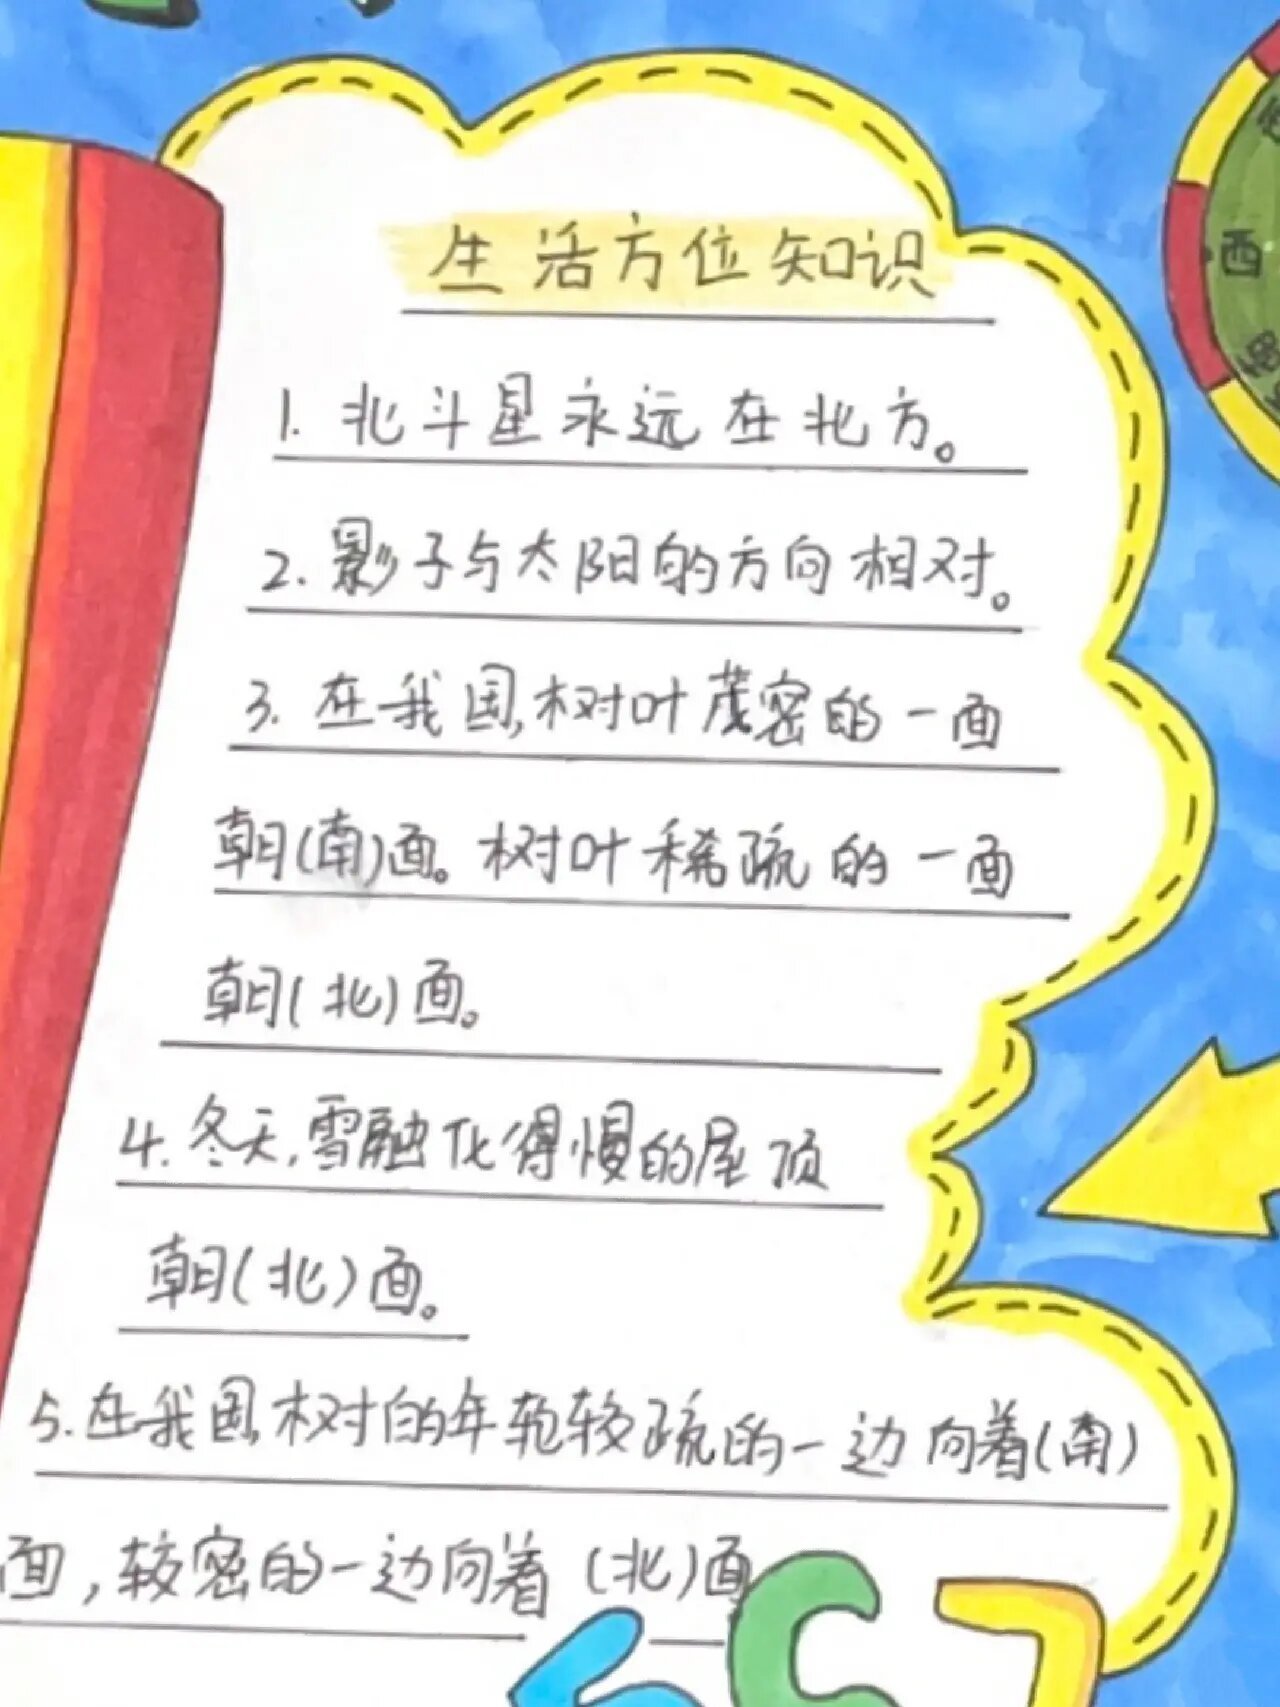 生活方位知识
1. 北斗星永远在北方。
2. 影子与太阳的方向相对。
3. 在我国,树叶茂密的一面
朝(南)面。树叶稀疏的一面
朝(北)面。
4. 冬天,雪融化得慢的屋顶
朝(北)面。
5. 在我国,树的年轮较疏的一边向着(南)
面,较密的一边向着(北)面
西